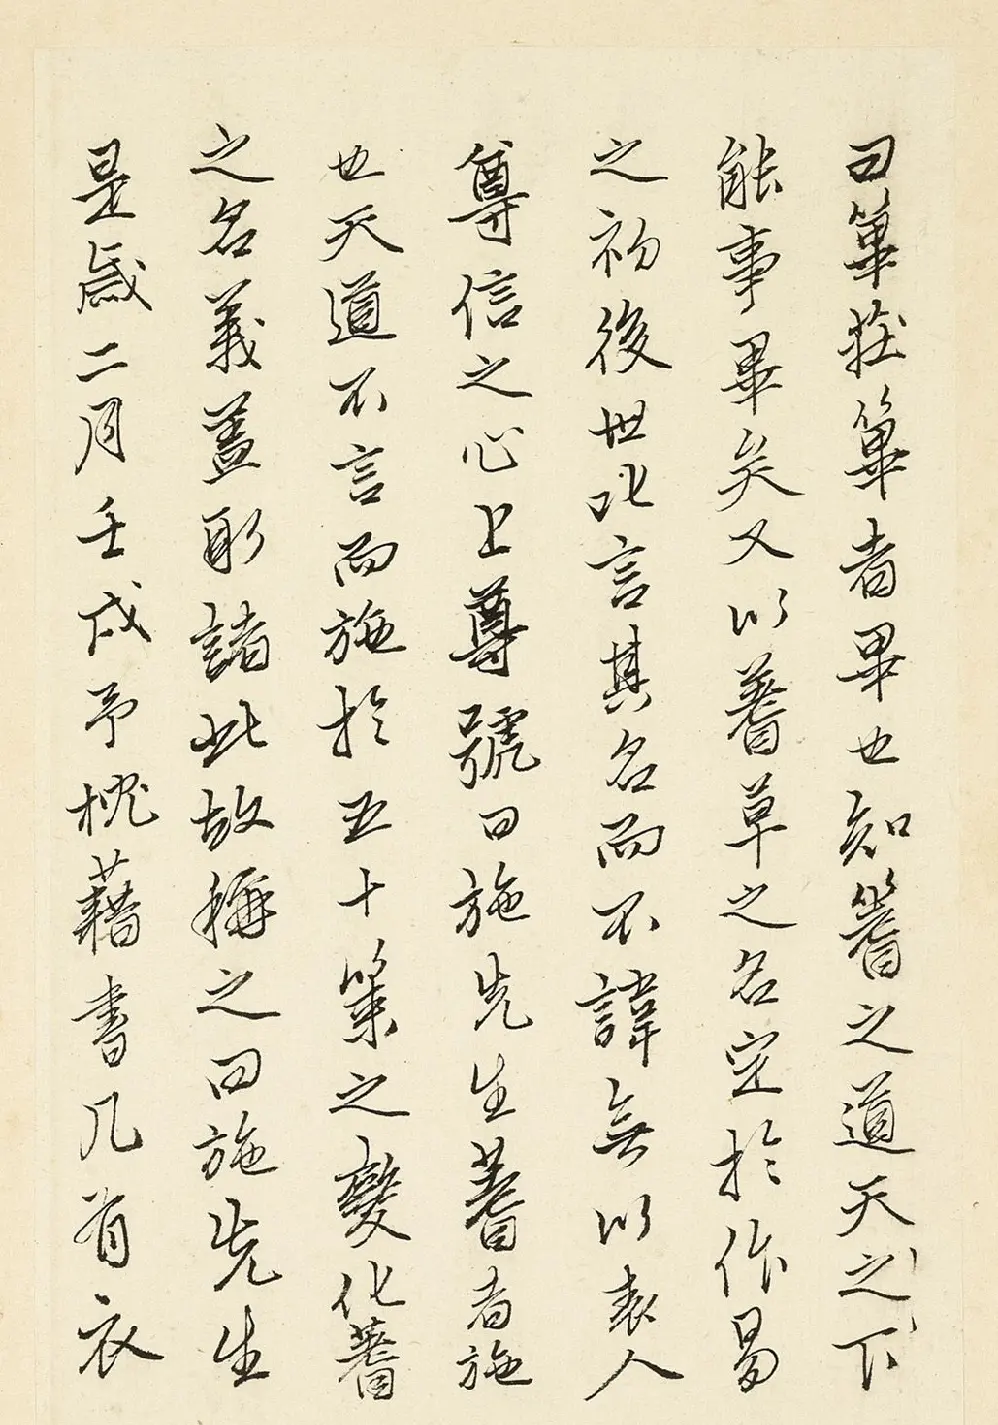 曰篳莊篳者畢也知蓍之道天之下
能事畢矣又以蓍草之名定於作易
之初後世叱言其名而不諱無以表人
尊信之心上尊號曰施先生蓍者施
也天道不言而施於五十策之變化蓍
之名義蓋取諸此故稱之曰施先生
是歲二月壬戌予枕藉書几有衣